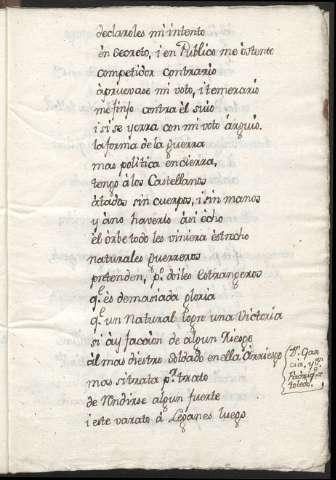 declaroles mi intento
en Secreto, i en Publico me ostento
competidor contrario
apruevase mi voto, i temerario
me finjo contra èl suio
i si se yerra con mi voto arguio.
la forma de la guerra
mas politica encierra,
tengo â los Castellanos
âtados sin cuerpos, i sin manos
y â no haverlo âsi êcho
êl ôrbe todo les viniera êstrecho
naturales guerreros
pretenden, pº. doiles Estrangeros
qᵉ. ês demasiada gloria
qᵉ. un Natural logre una Victoria
si âỳ faccion de algun Riesgo
âl mas diestro soldado en ella Arriesgo
mas si trata pʳ. trato
de Rendirse algun fuerte
i este varato â Leganes luego
Dⁿ. Gar-
cia, y Dⁿ.
Fadriqᵉ. de
Toledo.